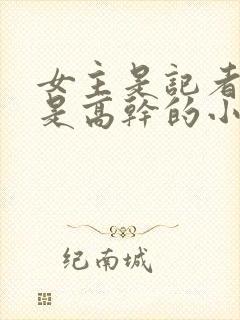 女主是記者
是高幹的小
纪南城